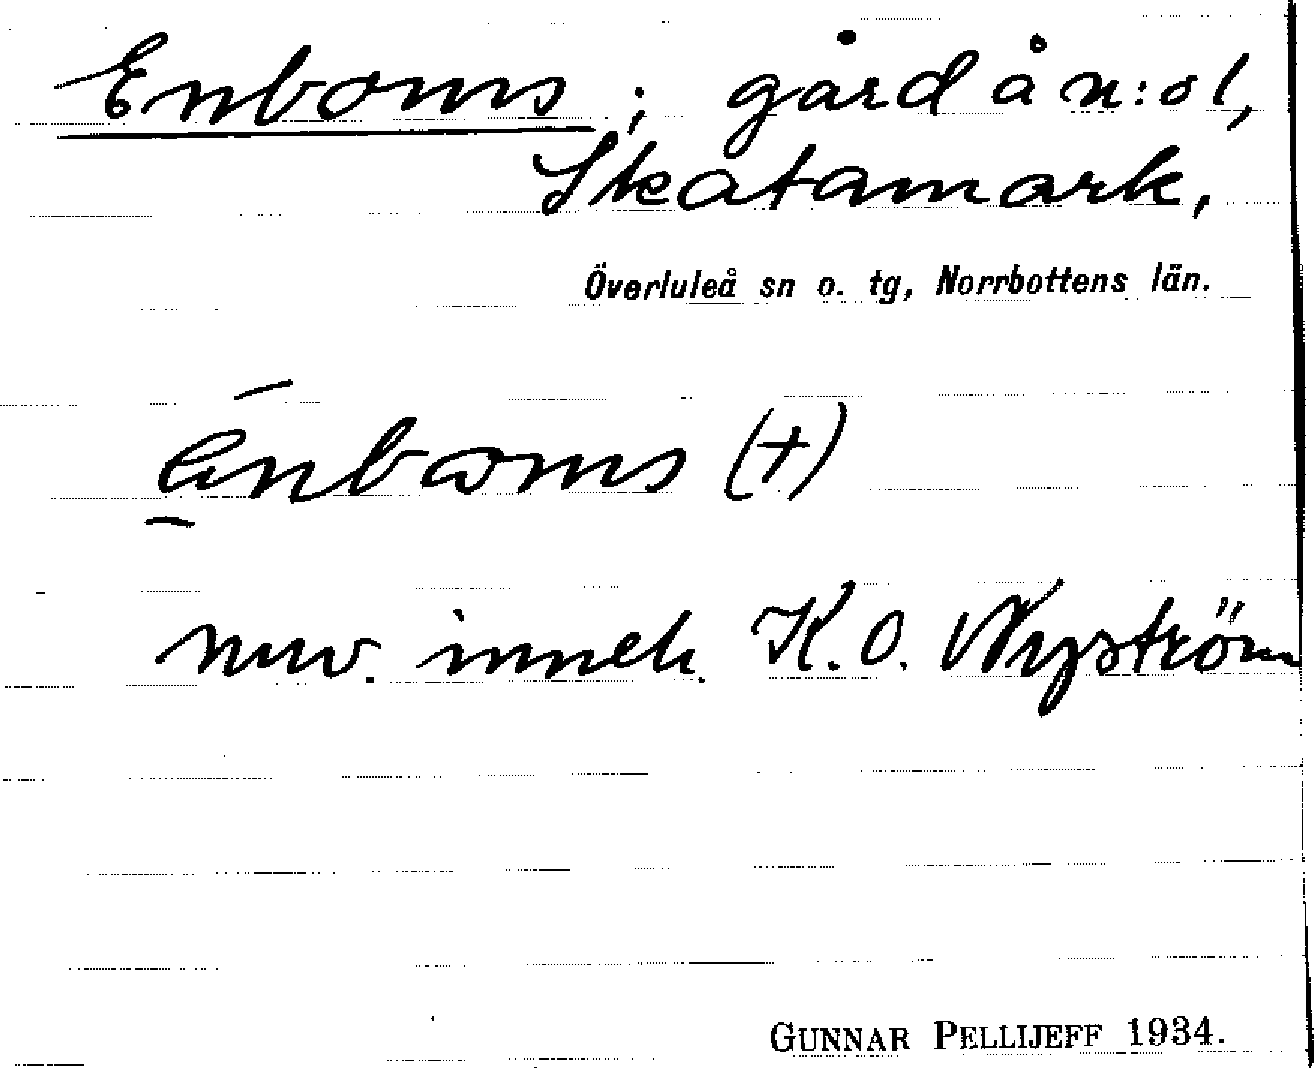 Enboms; gård å n:o 1,
Skatamark,
Överluleå sn o. tg, Norrbottens län.
(+)
nuv. inneh. K. O. Nyström
GUNNAR PELLIJEFF 1934.